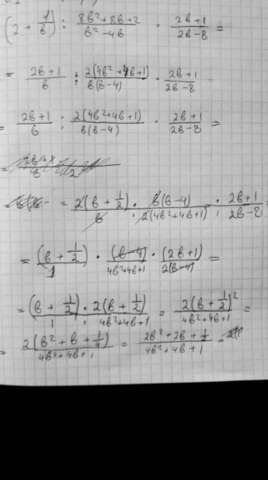 (2 + 1/b) : (8b² + 8b + 2)/(b² - 4b) · (2b+1)/(2b-8) =
= (2b+1)/b : 2(4b² + 4b+1)/(b(b-4)) · (2b+1)/(2b-8)
= (2b+1)/b : 2(4b²+4b+1)/(b(b-4)) · (2b+1)/(2b-8) =
= 2(b + 1/2)/b · b(b-4)/(2(4b²+4b+1)) · (2b+1)/(2b-8) =
= (b + 1/2)/1 · (b-4)/(4b²+4b+1) · (2b+1)/(2(b-4)) =
= (b + 1/2)/1 · 2(b + 1/2)/(4b²+4b+1) = 2(b + 1/2)²/(4b²+4b+1) =
= 2(b² + b + 1/4)/(4b²+4b+1) = (2b² + 2b + 1/2)/(4b²+4b+1) =